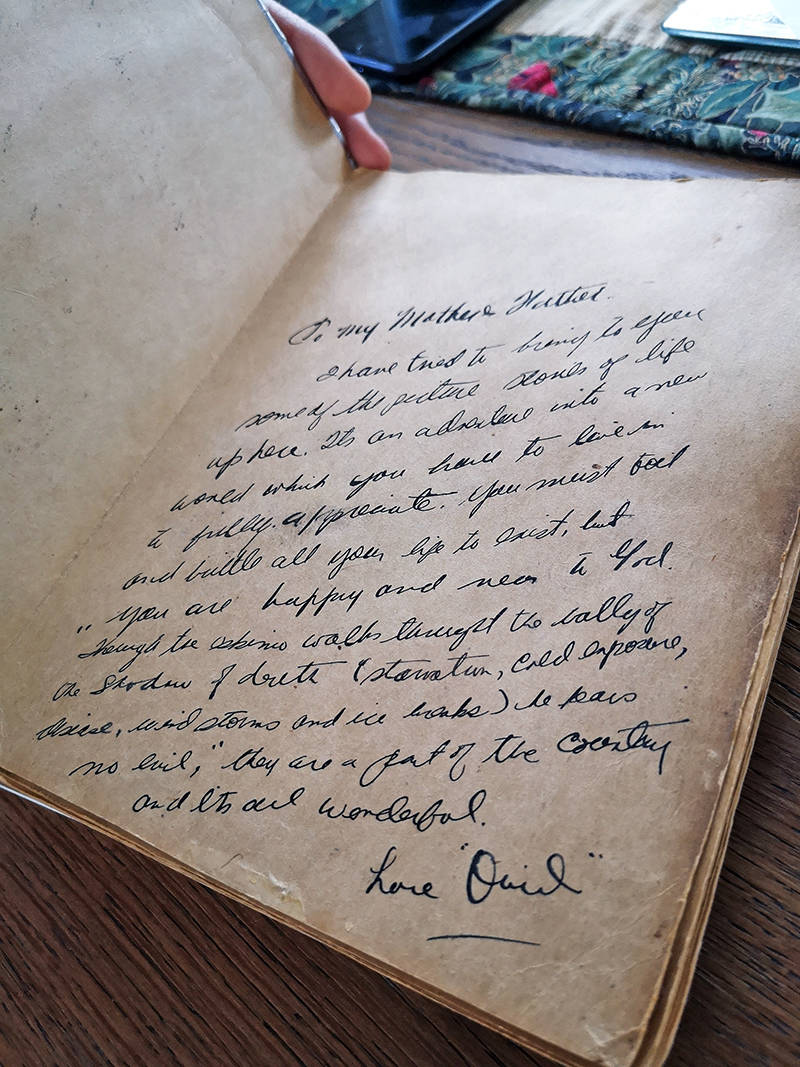 To My Mother & Father.
I have tried to bring to you
some of the picture stories of life
up here. Its an adventure into a new
world which you have to live in
to fully appreciate. You must toil
and battle all your life to exist, but
you are happy and near to God.
"Though the eskimo walks through the vally of
the Shadow of death (starvation, cold exposure,
disease, wind storms and ice breaks) he fears
no evil," they are a part of the country
and Its all wonderful.
Love